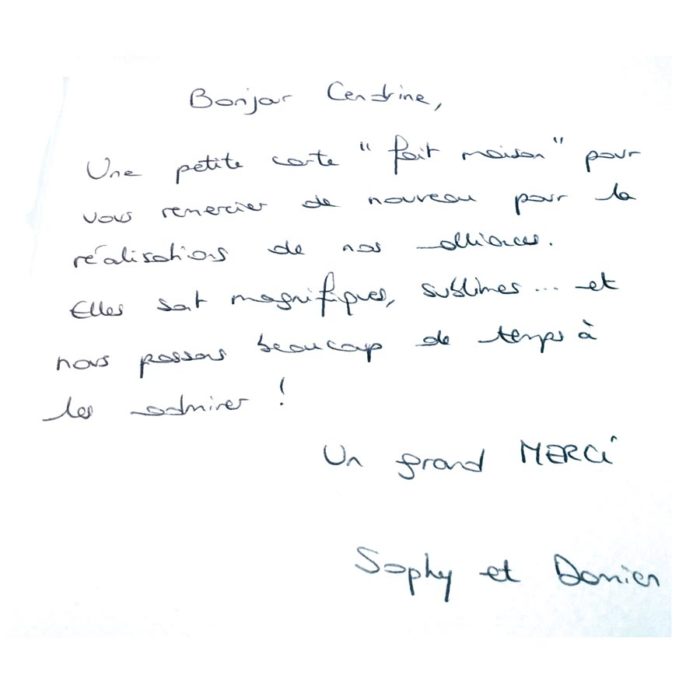 Bonjour Cendrine,
Une petite carte "fait maison" pour
vous remercier de nouveau pour la
réalisations de nos alliances.
Elles sont magnifiques, sublimes... et
nous passons beaucoup de temps à
les admirer !
Un grand MERCI
Sophy et Damien